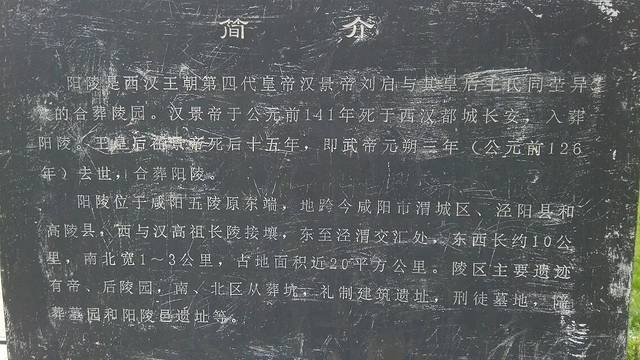 简 介
阳陵是西汉王朝第四代皇帝汉景帝刘启与其皇后王氏同茔异
的合葬陵园。汉景帝于公元前141年死于西汉都城长安，入葬
阳陵。王皇后在景帝死后十五年，即武帝元朔三年（公元前126
年）去世，合葬阳陵。
阳陵位于咸阳五陵原东端，地跨今咸阳市渭城区、泾阳县和
高陵县，西与汉高祖长陵接壤，东至泾渭交汇处，东西长约10公
里，南北宽1～3公里，占地面积近20平方公里。陵区主要遗迹
有帝、后陵园，南、北区从葬坑，礼制建筑遗址，刑徒墓地，陪
葬墓园和阳陵邑遗址等。